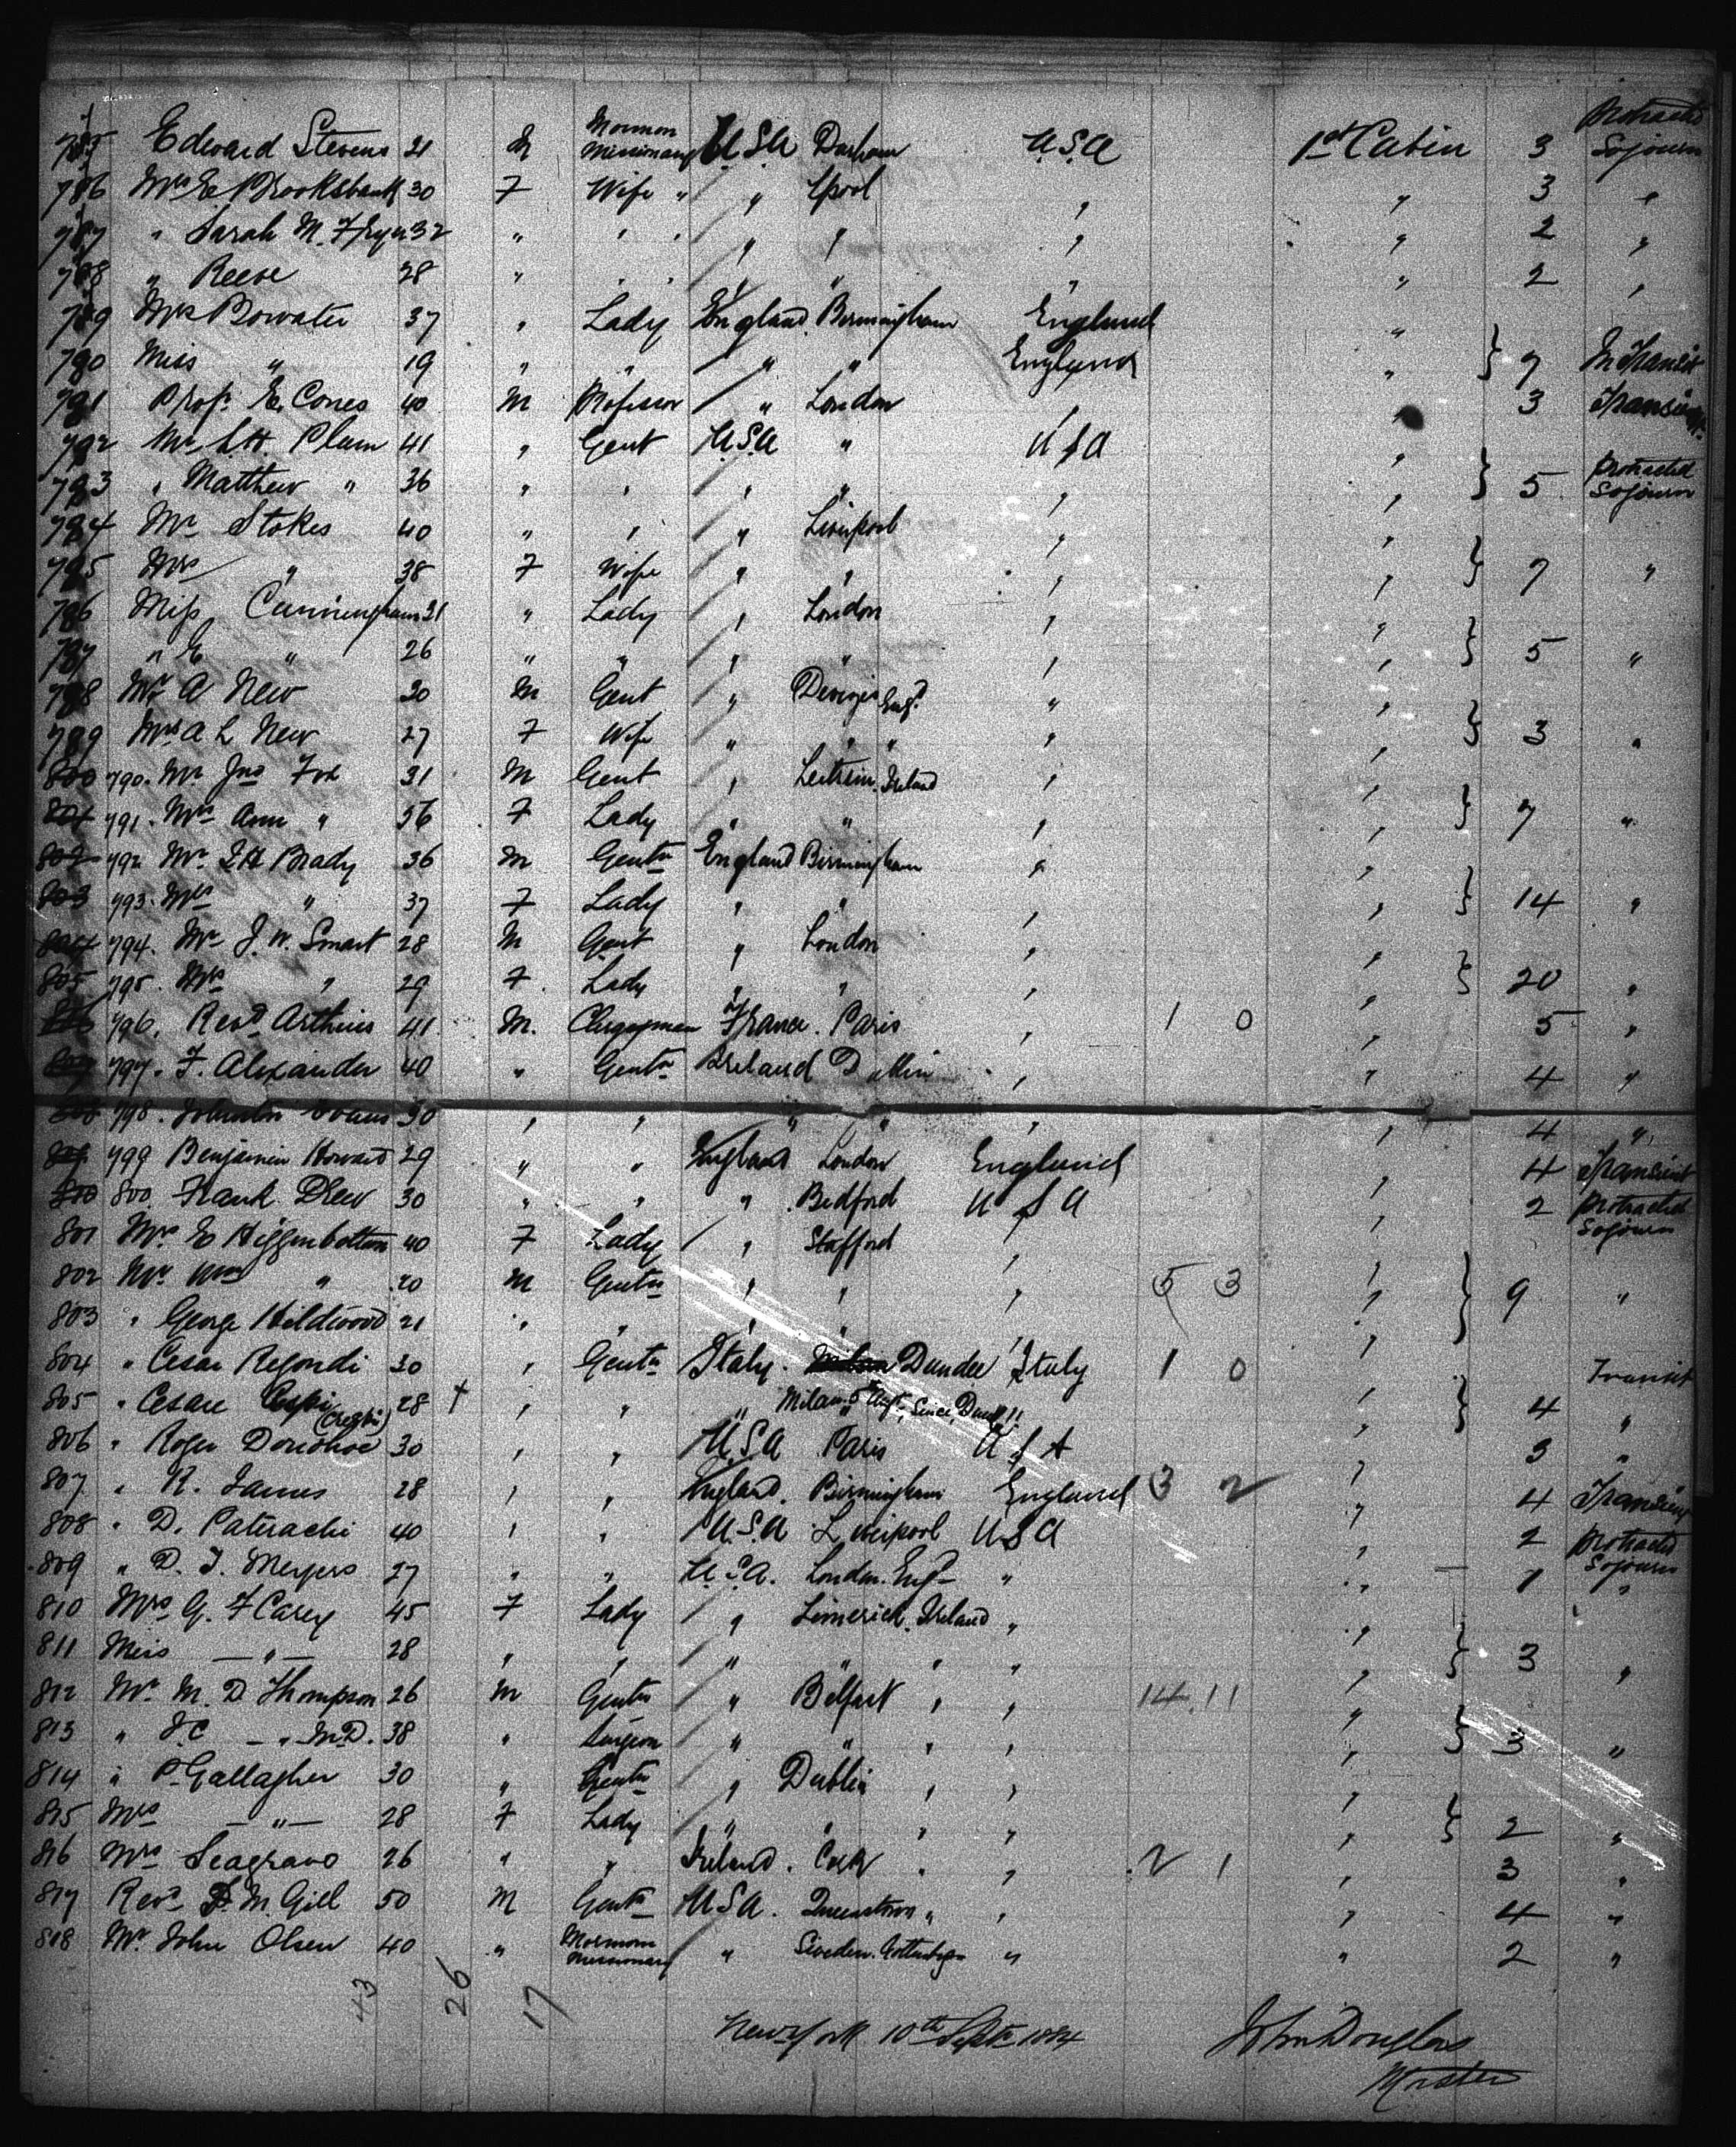 Protracted
785 Edward Stevens 21 M Mormon Missionary U.S.A Durham U.S.A 1st Cabin 3 Sojourn
786 Mrs E Brooksbank 30 F Wife " " Lpool " " 3 "
787 " Sarah M. Fryer 32 " " " " " " " 2 "
788 " Reese 28 " " " " " " " 2 "
789 Mrs Bowater 37 " Lady England Birmingham England "
790 Miss " 19 " " " " England " } 7 In Transit
791 Prof. E. Coues 40 M Professor " London " " 3 Transit
792 Mr L.H. Plum 41 " Gent U.S.A " U S A "
793 " Matthew " 36 " " " " " " } 5 Protracted Sojourn
794 Mr Stokes 40 " " " Liverpool " "
795 Mrs " 38 F Wife " " " " } 7 "
796 Miss Cunningham 31 " Lady " London " "
797 " E " 26 " " " " " " } 5 "
798 Mr A New 30 M Gent " Devizes Engd " "
799 Mrs A L New 27 F Wife " " " " " } 3 "
800 790. Mr Jno Fox 31 M Gent " Leitrim. Ireland " "
801 791. Mrs Ann " 56 F Lady " " " " } 7 "
802 792 Mr Brady 36 M Gentn England Birmingham " "
803 793. Mrs " 37 F Lady " " " " } 14 "
804 794. Mr J. W. Smart 28 M Gent " London " "
805 795. Mrs " 29 F. Lady " " " " } 20 "
806 796. Revd Arthuis 41 M. Clergyman France. Paris " 1 0 " 5 "
807 797. F. Alexander 40 " Gentn Ireland Dublin " " 4 "
808 798. Johnston Evans 30 " " " " " " 4 "
809 799 Benjamin Howard 29 " " England London England " 4 Transient
800 Frank Drew 30 " " " Bedford U S A " 2 Protracted Sojourn
801 Mrs E Higginbottom 40 F Lady " Stafford " "
802 Mr Wm " 20 M Gentn " " " 5 3 "
803 " George Hildwood 21 " " " " " " } 9 "
804 " Cesar Regondi 30 " Gentn Italy. Dundee Italy 1 0 " Transit
805 " Cesare Cespi (Crespi) 28 + " " " Milan. Since, " } 4 "
806 " Roger Donohoe 30 " " U.S.A Paris U S A " 3 "
807 " R. James 28 " " England. Birmingham England 3 2 " 4 Transient
808 " D. Paterachi 40 " " U.S.A Liverpool U S A " 2 Protracted Sojourn
809 " D. J. Meyers 27 " " U.S.A. London. Engd " " 1 "
810 Mrs G. F Carey 45 F Lady " Limerick. Ireland " "
811 Miss — " — 28 " " " " " " " } 3 "
812 Mr M. D Thompson 26 M Gentn " Belfast " " 14 11 "
813 " J.C — " M.D. 38 " Surgeon " " " " " } 3 "
814 " P Gallagher 30 " Gentn " Dublin " " "
815 Mrs — " — 28 F Lady " " " " " } 2 "
816 Mrs Seagrave 26 " " Ireland. Cork " " 2 1 " 3 "
817 Revd M. Gill 50 M Gentn U S A. Queenstown " " " 4 "
818 Mr John Olsen 40 " Mormon Missionary " Sweden. Gottenburgh " " 2 "
43 26 17
New York 10th Septr 1884
John Douglas
Master